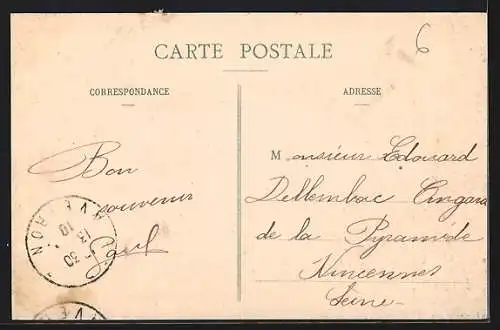 CARTE POSTALE
6
CORRESPONDANCE
ADRESSE
Bon
souvenir
Paul
Monsieur Edouard
Dellembac
de la Pyramide
Vincennes
Seine
13-30
10